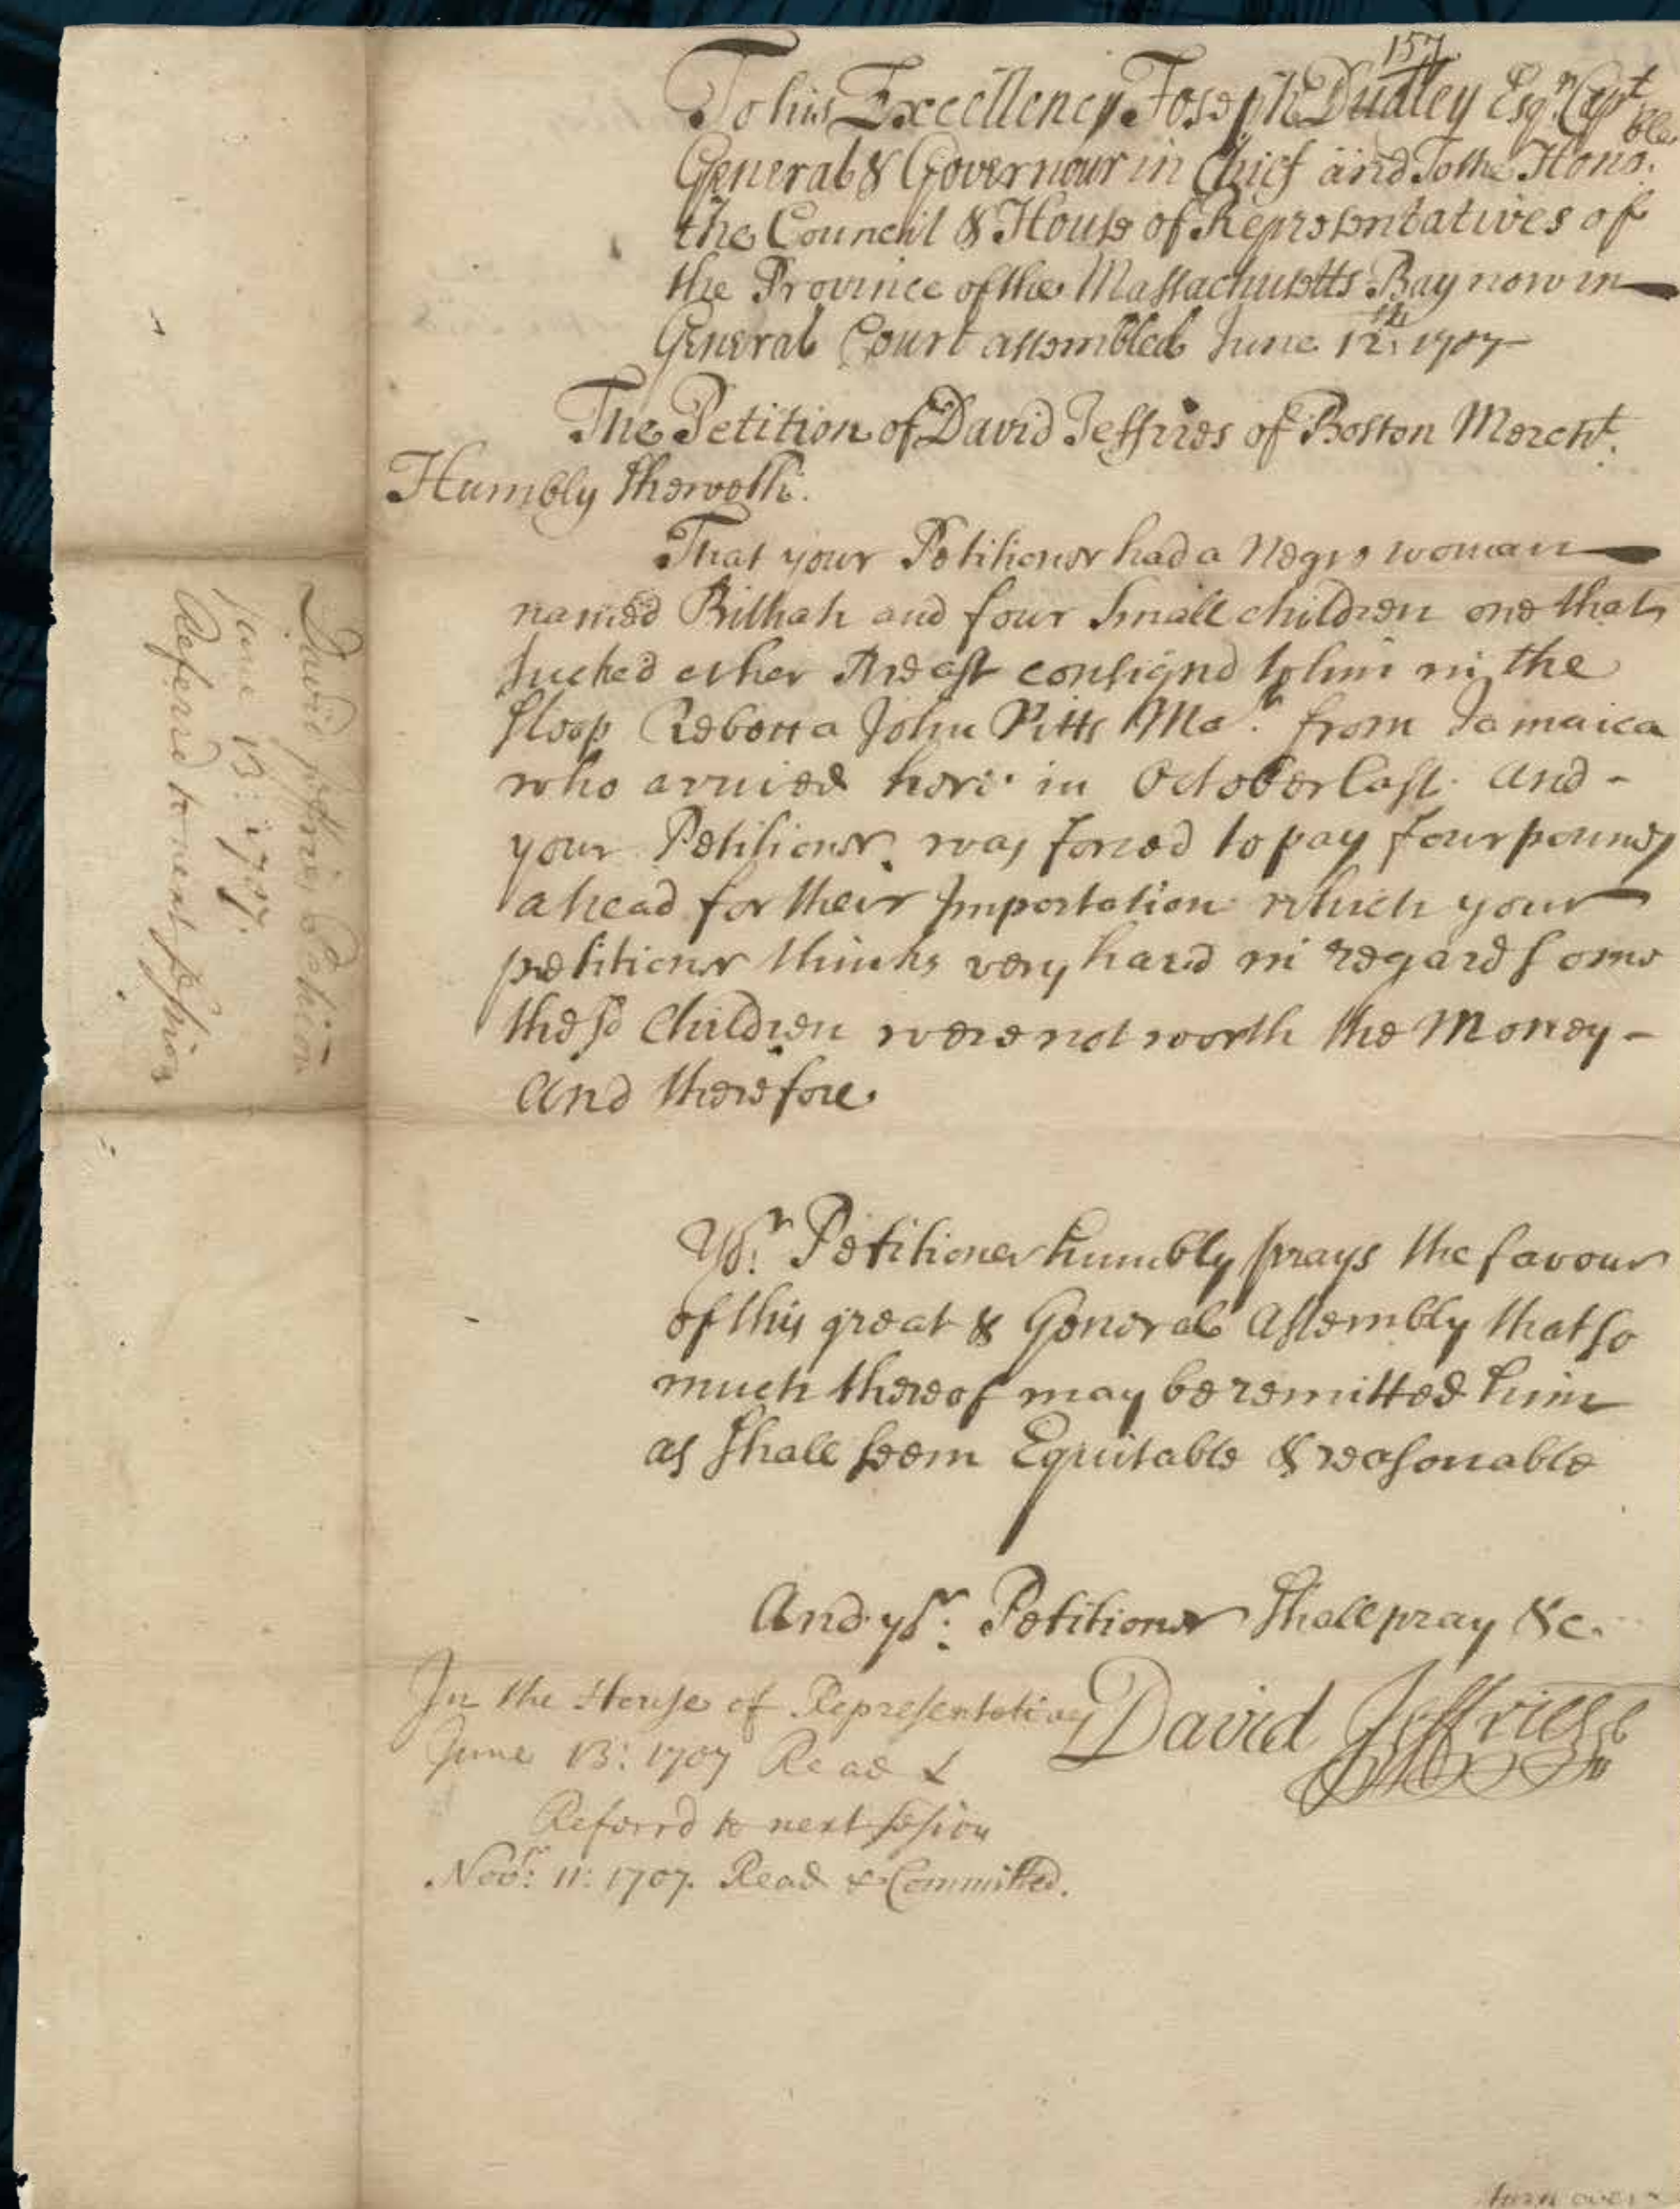 157
To his Excellency Joseph Dudley Esqr. Capt
General & Governour in Chief and To the Honoble.
the Council & House of Representatives of
the Province of the Massachusetts Bay now in
General Court assembled June 12th. 1707
The Petition of David Jeffries of Boston Mercht.
Humbly Sheweth.
That your Petitioner had a Negro woman
named Bilhah and four Small children one that
sucked at her Breast consignd to him in the
Sloop Rebecca John Pitts Mar. from Jamaica
who arrived here in October last. And -
your Petitioner. was forced to pay four pounds
a head for their Importation which your
petitioner thinks very hard in regard some
these Children were not worth the Money -
And therefore.
Yor. Petitioner humbly prays the favour
of this great & General Assembly that so
much thereof may be remitted him
as Shall seem Equitable & reasonable
And yor. Petitioner Shall pray &c.
David Jeffries
In the House of Representatives
June 13: 1707 Read &
Referrd to next session
Novr: 11: 1707. Read & Committed.
David Jeffries Petition
June 13: 1707.
Referrd to next session
turn over